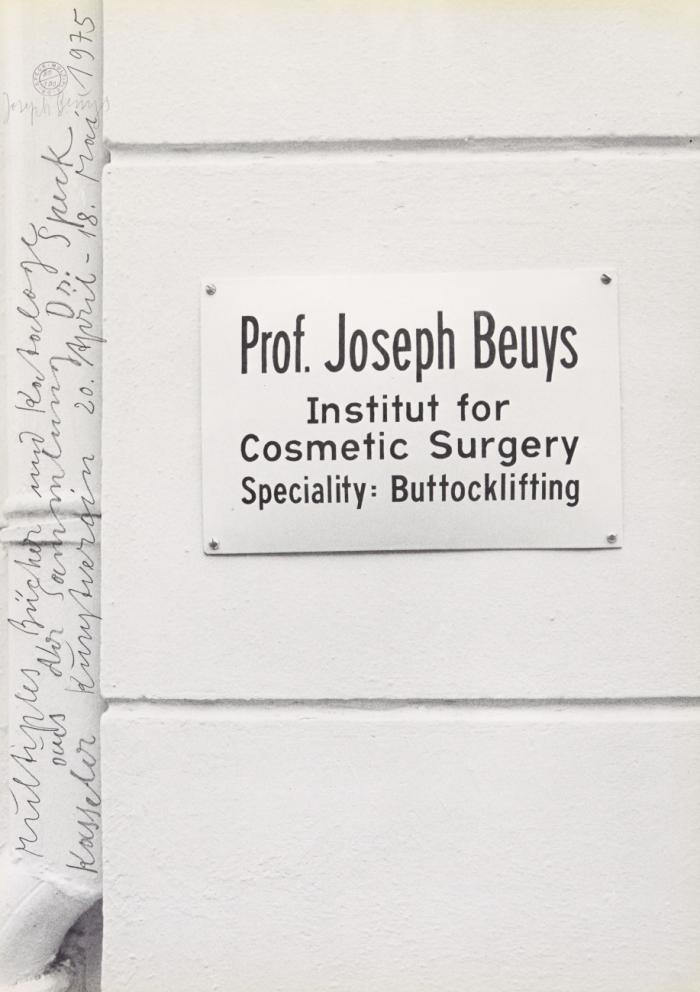 Prof. Joseph Beuys
Institut for
Cosmetic Surgery
Speciality: Buttocklifting
multiples Bücher und Kataloge
aus der Sammlung Dr. Speck
Kasseler Kunstverein 20. April - 18. Mai 1975
Joseph Beuys